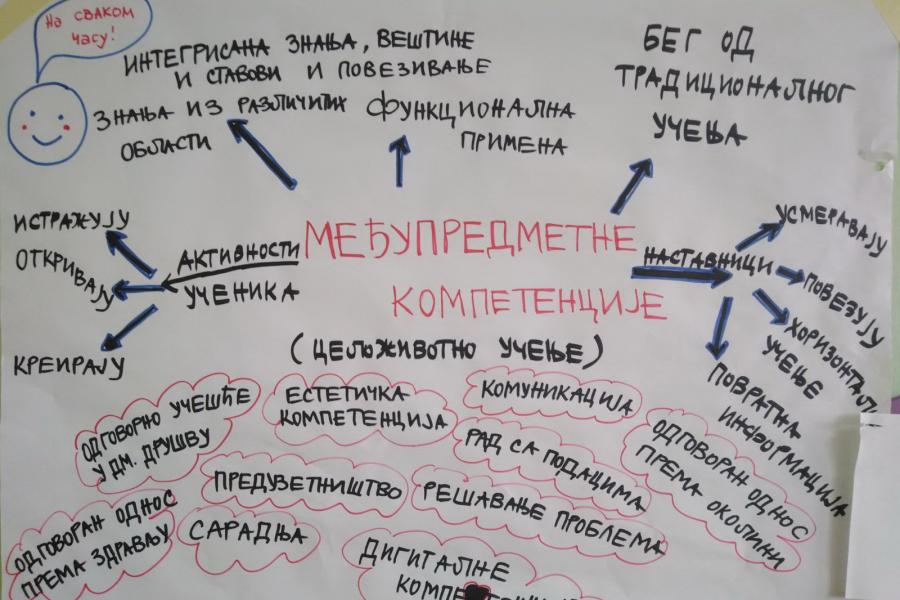 На сваком
часу!
ИНТЕГРИСАНА ЗНАЊА, ВЕШТИНЕ
И СТАВОВИ И ПОВЕЗИВАЊЕ
ЗНАЊА ИЗ РАЗЛИЧИТИХ
ОБЛАСТИ
ФУНКЦИОНАЛНА
ПРИМЕНА
БЕГ ОД
ТРАДИЦИОНАЛНОГ
УЧЕЊА
ИСТРАЖУЈУ
ОТКРИВАЈУ
КРЕИРАЈУ
АКТИВНОСТИ
УЧЕНИКА
МЕЂУПРЕДМЕТНЕ
КОМПЕТЕНЦИЈЕ
(ЦЕЉОЖИВОТНО УЧЕЊЕ)
НАСТАВНИЦИ
УСМЕРАВАЈУ
ПОВЕЗУЈУ
УЧЕЊЕ
ПОВРАТНА
ИНФОРМАЦИЈА
ОДГОВОРНО УЧЕШЋЕ
У ДМ. ДРУШВУ
ЕСТЕТИЧКА
КОМПЕТЕНЦИЈА
КОМУНИКАЦИЈА
РАД СА ПОДАЦИМА
ОДГОВОРАН ОДНОС
ПРЕМА ОКОЛИНИ
ПРЕДУЗЕТНИШТВО
РЕШАВАЊЕ ПРОБЛЕМА
ОДГОВОРАН ОДНОС
ПРЕМА ЗДРАВЉУ
САРАДЊА
ДИГИТАЛНЕ